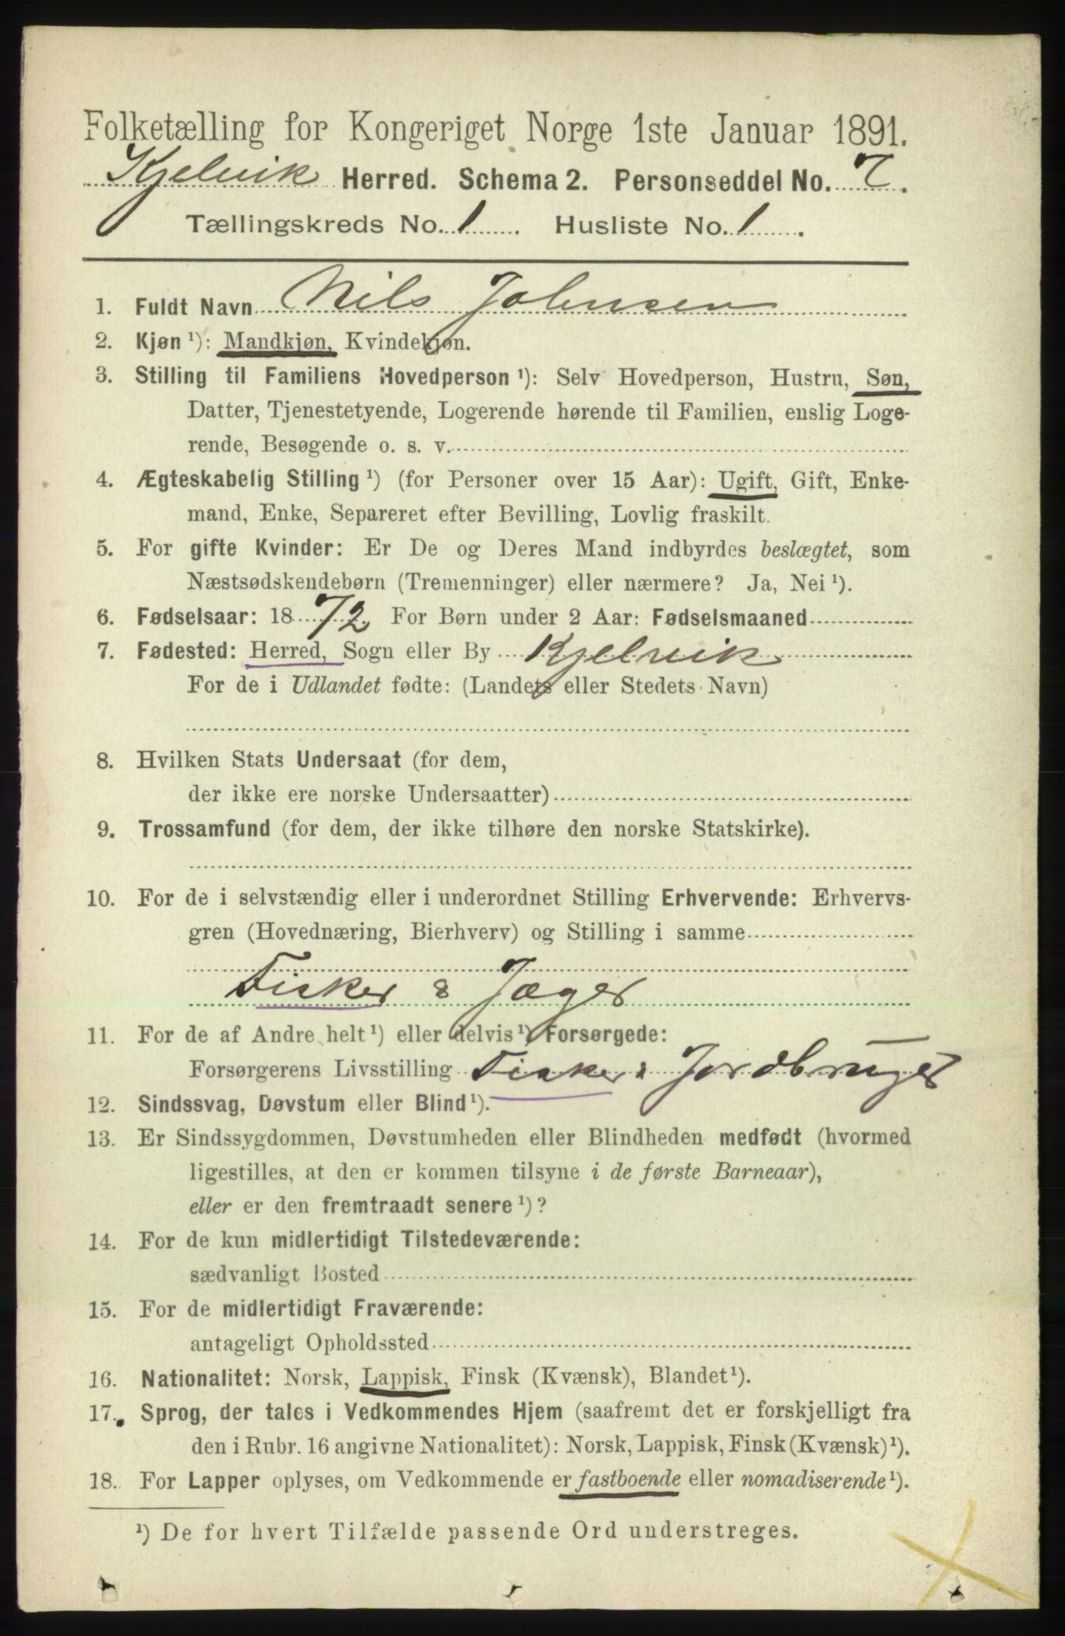 Folketælling for Kongeriget Norge 1ste Januar 1891.
Kjelvik Herred. Schema 2. Personseddel No. 7.
Tællingskreds No. 1. Husliste No. 1.
1. Fuldt Navn Nils Johnsen
2. Kjøn ¹): Mandkjøn, Kvindekjøn.
3. Stilling til Familiens Hovedperson ¹): Selv Hovedperson, Hustru, Søn,
Datter, Tjenestetyende, Logerende hørende til Familien, enslig Loge-
rende, Besøgende o. s. v.
4. Ægteskabelig Stilling ¹) (for Personer over 15 Aar): Ugift, Gift, Enke-
mand, Enke, Separeret efter Bevilling, Lovlig fraskilt.
5. For gifte Kvinder: Er De og Deres Mand indbyrdes beslægtet, som
Næstsødskendebørn (Tremenninger) eller nærmere? Ja, Nei ¹).
6. Fødselsaar: 1872. For Børn under 2 Aar: Fødselsmaaned
7. Fødested: Herred, Sogn eller By Kjelvik
For de i Udlandet fødte: (Landets eller Stedets Navn)
8. Hvilken Stats Undersaat (for dem,
der ikke ere norske Undersaatter)
9. Trossamfund (for dem, der ikke tilhøre den norske Statskirke).
10. For de i selvstændig eller i underordnet Stilling Erhvervende: Erhvervs-
gren (Hovednæring, Bierhverv) og Stilling i samme
Fisker & Jæger
11. For de af Andre helt ¹) eller delvis ¹) Forsørgede:
Forsørgerens Livsstilling Fisker & Jordbruger
12. Sindssvag, Døvstum eller Blind ¹).
13. Er Sindssygdommen, Døvstumheden eller Blindheden medfødt (hvormed
ligestilles, at den er kommen tilsyne i de første Barneaar),
eller er den fremtraadt senere ¹)?
14. For de kun midlertidigt Tilstedeværende:
sædvanligt Bosted
15. For de midlertidigt Fraværende:
antageligt Opholdssted
16. Nationalitet: Norsk, Lappisk, Finsk (Kvænsk), Blandet ¹).
17. Sprog, der tales i Vedkommendes Hjem (saafremt det er forskjelligt fra
den i Rubr. 16 angivne Nationalitet): Norsk, Lappisk, Finsk (Kvænsk) ¹).
18. For Lapper oplyses, om Vedkommende er fastboende eller nomadiserende ¹).
¹) De for hvert Tilfælde passende Ord understreges.